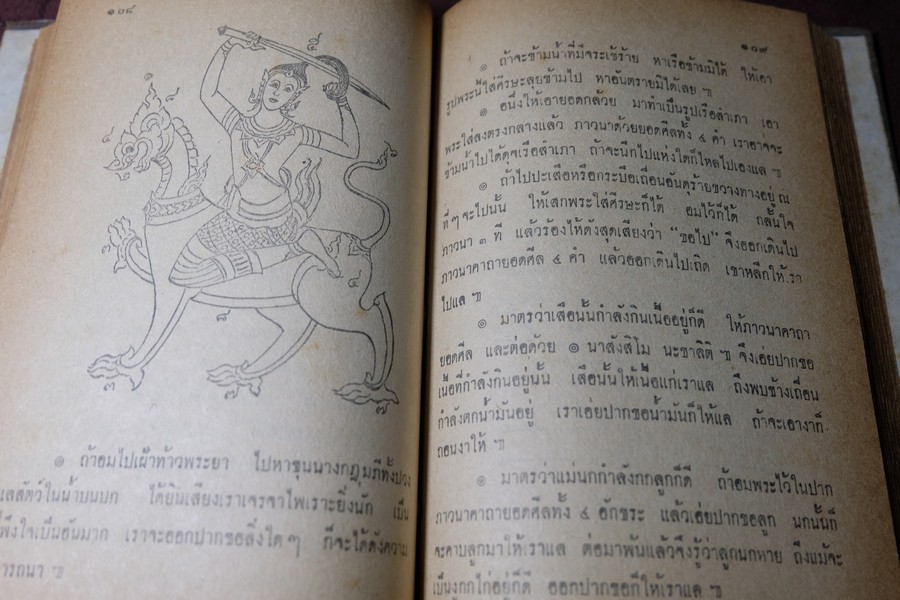 ๑๐๘
๕
๑
๕
๔
๘
๓
๑ ถ้าอมไปเฝ้าท้าวพระยา ไปหาขุนนางกฎุมภีทั้งปวง
แลสัตว์ในน้ำบนบก ได้ยินเสียงเราเจรจาไพเราะยิ่งนัก เป็น
พึงใจเป็นอันมาก เราจะออกปากขอสิ่งใดๆ ก็จะได้ดังความ
ารถนา ๚
๑๐๙
๑ ถ้าจะข้ามน้ำที่มีจระเข้ร้าย หาเรือข้ามมิได้ ให้เอา
รูปพระนี้ใส่ศีรษะลุยข้ามไป หาอันตรายมิได้เลย ๚
๑ อนึ่งให้เอายอดกล้วย มาทำเป็นรูปเรือสำเภา เอา
พระใส่ลงตรงกลางแล้ว ภาวนาด้วยยอดศีลทั้ง ๔ คำ เราอาจจะ
ข้ามน้ำไปได้ดุจเรือสำเภา ถ้าจะนึกไปแห่งใดก็ไหลไปเองแล ๚
๑ ถ้าไปปะเสือหรือกระบือเถื่อนอันดุร้ายขวางทางอยู่ ณ
ที่ๆ จะไปนั้น ให้เสกพระใส่ศีรษะก็ได้ อมไว้ก็ได้ กลั้นใจ
ภาวนา ๓ ที แล้วร้องให้ดังสุดเสียงว่า “ขอไป” จึงออกเดินไป
ภาวนาคาถายอดศีล ๔ คำ แล้วออกเดินไปเถิด เขาหลีกให้เรา
ไปแล ๚
๑ มาตรว่าเสือนั้นกำลังกินเนื้ออยู่ก็ดี ให้ภาวนาคาถา
ยอดศีล และต่อด้วย ๑ นาสังสิโม นะชาลิติ ๚ จึงเอ่ยปากขอ
เนื้อที่กำลังกินอยู่นั้น เสือนั้นให้เนื้อแก่เราแล ถึงพบช้างเถื่อน
กำลังตกน้ำมันอยู่ เราเอ่ยปากขอน้ำมันก็ให้แล ถ้าจะเอางาก็
ถอนงาให้ ๚
๑ มาตรว่าแม่นกกำลังกกลูกก็ดี ถ้าอมพระไว้ในปาก
ภาวนาคาถายอดศีลทั้ง ๔ อักขระ แล้วเอ่ยปากขอลูก นกนั้นก็
จะคาบลูกมาให้เราแล ต่อมาพ้นแล้วจึงรู้ว่าลูกนกหาย ถึงแม้จะ
เป็นงูกกไก่อยู่ก็ดี ออกปากขอก็ให้เราแล ๚